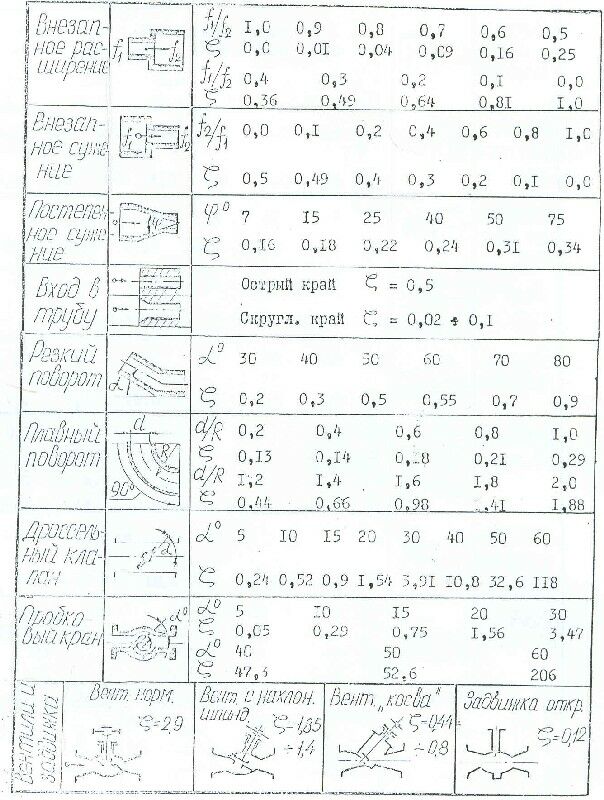 Внезап-
ное рас-
ширение
f1
f2
f1/f2 I,0 0,9 0,8 0,7 0,6 0,5
ζ 0,0 0,01 0,04 0,09 0,16 0,25
f1/f2 0,4 0,3 0,2 0,I 0,0
ζ 0,36 0,49 0,64 0,8I I,0
Внезап-
ное суже-
ние
f1
f2
f2/f1 0,0 0,I 0,2 0,4 0,6 0,8 I,0
ζ 0,5 0,49 0,4 0,3 0,2 0,I 0,0
Постепен-
ное суже-
ние
φ° 7 I5 25 40 50 75
ζ 0,I6 0,I8 0,22 0,24 0,3I 0,34
Вход в
трубу
Острый край ζ = 0,5
Скругл. край ζ = 0,02 ÷ 0,I
Резкий
поворот
α
α° 30 40 50 60 70 80
ζ 0,2 0,3 0,5 0,55 0,7 0,9
Плавный
поворот
d
R
90°
d/R 0,2 0,4 0,6 0,8 I,0
ζ 0,I3 0,I4 0,I8 0,2I 0,29
d/R I,2 I,4 I,6 I,8 2,0
ζ 0,44 0,66 0,98 I,4I I,88
Дроссель-
ный кла-
пан
α
α° 5 I0 I5 20 30 40 50 60
ζ 0,24 0,52 0,9 I,54 3,9I I0,8 32,6 II8
Пробко-
вый кран
α°
α° 5 I0 I5 20 30
ζ 0,05 0,29 0,75 I,56 3,47
α° 40 50 60
ζ 47,3 52,6 206
Вентили и
задвижка
Вент. норм.
ζ=2,9
Вент. с наклон.
шпинд.
ζ=1,85
÷1,4
Вент. „косва"
ζ=0,44
÷0,8
Задвижка откр.
ζ=0,12